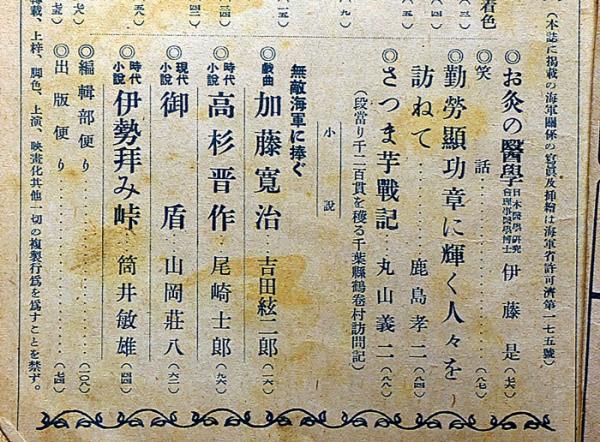 (本誌に掲載の海軍關係の寫眞及挿繪は海軍省許可濟第一七五號)
◎お灸の醫學 日本醫學研究會理事醫學博士 伊藤是 (七六)
◎笑話 (八七)
◎勤勞顯功章に輝く人々を
訪ねて 鹿島孝二 (八四)
◎さつま芋戰記 丸山義二 (八八)
(段當り千二百貫を穫る千葉縣鶴卷村訪問記)
小説
無敵海軍に捧ぐ
◎戯曲 加藤寬治 吉田絃二郎 (二六)
◎時代小說 高杉晋作 尾崎士郎 (九六)
◎現代小說 御盾 山岡莊八 (六二)
◎時代小說 伊勢拜み峠 筒井敏雄 (四四)
◎編輯部便り (一〇八)
◎出版便り (七四)
轉載、上梓、脚色、上演、映畫化其他一切の複製行爲を爲すことを禁ず。